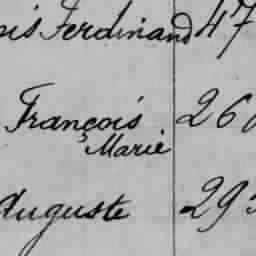 Ferdinand 47
François 26
Marie
Auguste 29